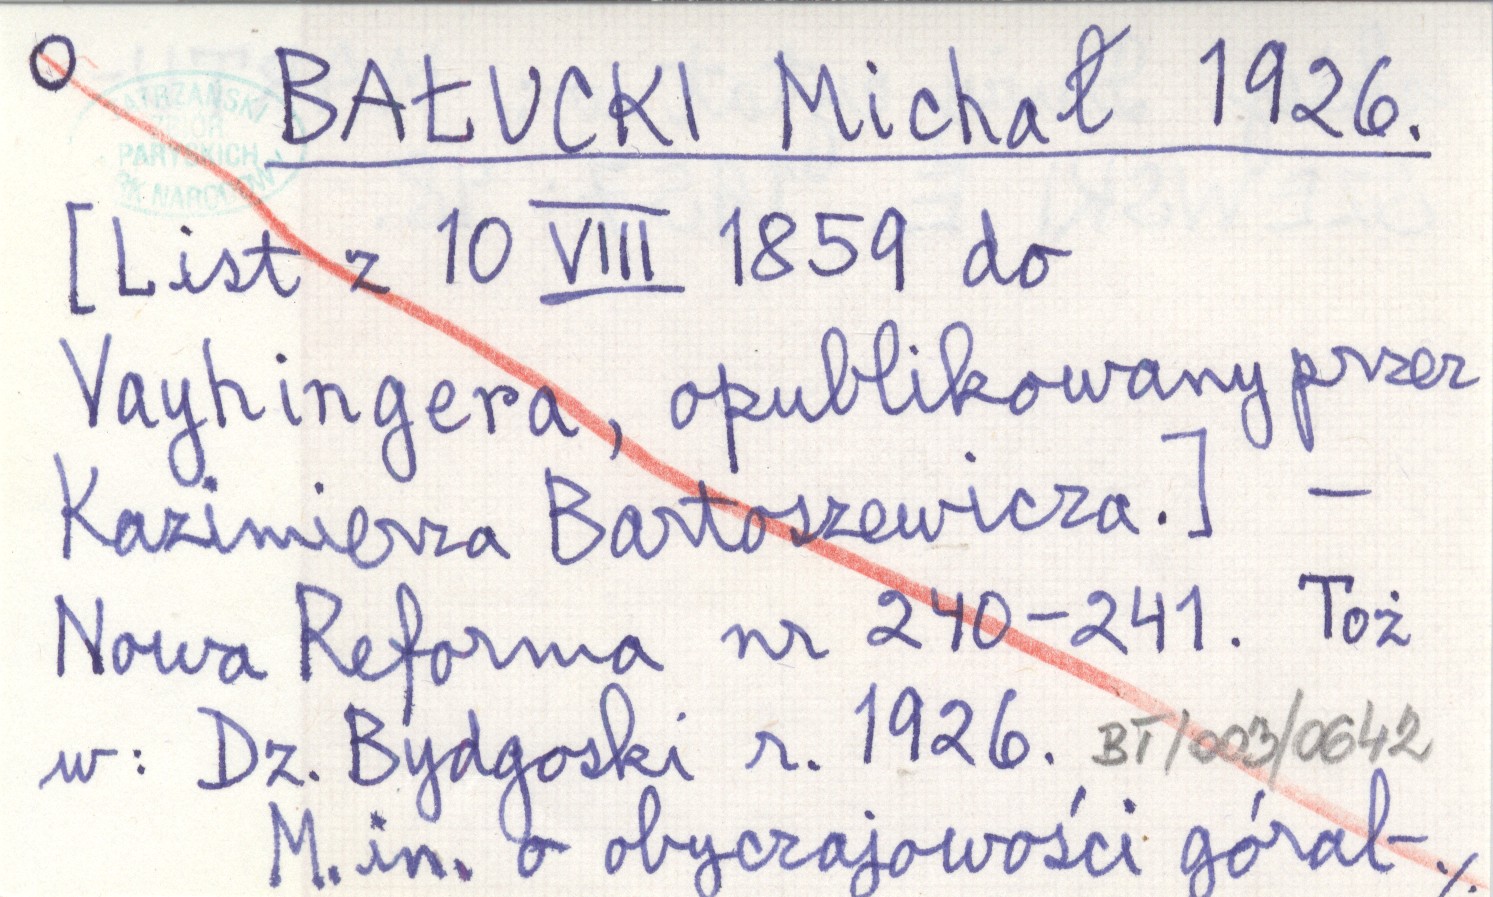 BAŁUCKI Michał 1926.
[List z 10 VIII 1859 do
Vayhingera, opublikowany przez
Kazimierza Bartoszewicza.] —
Nowa Reforma nr 240-241. Toż
w: Dz. Bydgoski r. 1926. BT/003/0642
M.in. o obyczajowości góral-./.
PARYSKICH